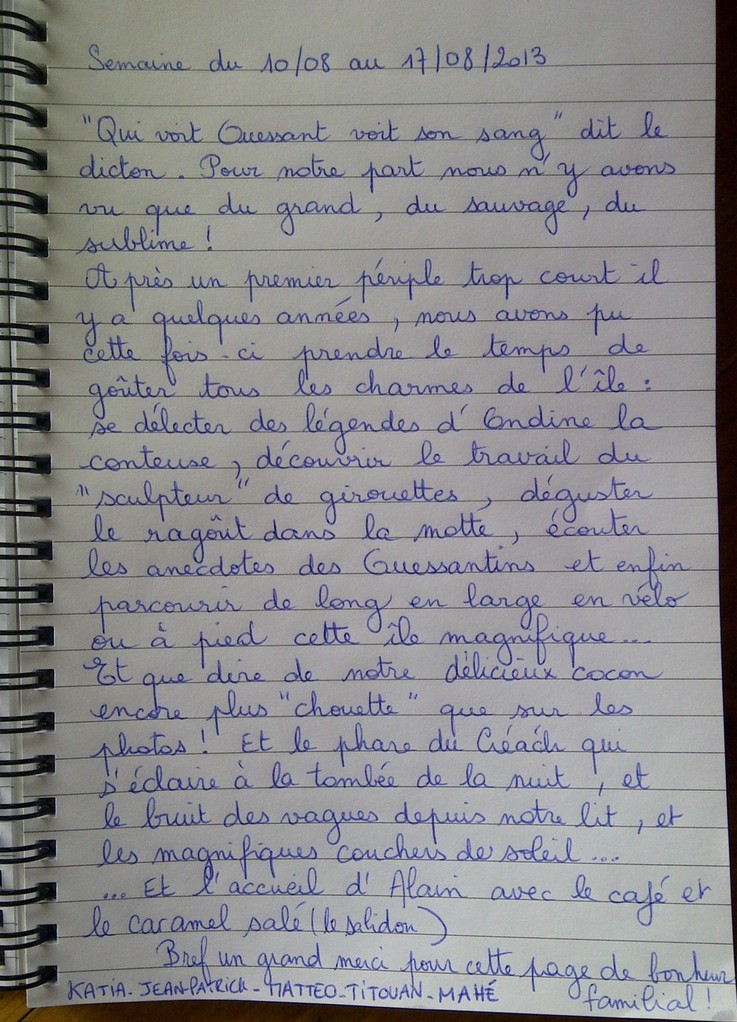 Semaine du 10/08 au 17/08/2013
"Qui voit Ouessant voit son sang" dit le
dicton. Pour notre part nous n'y avons
vu que du grand, du sauvage, du
sublime !
Après un premier périple trop court il
y a quelques années, nous avons pu
cette fois-ci prendre le temps de
goûter tous les charmes de l'île :
se délecter des légendes d'Ondine la
conteuse, découvrir le travail du
"sculpteur" de girouettes, déguster
le ragoût dans la motte, écouter
les anecdotes des Ouessantins et enfin
parcourir de long en large en vélo
ou à pied cette île magnifique...
Et que dire de notre délicieux cocon
encore plus "chouette" que sur les
photos ! Et le phare du Créach qui
s'éclaire à la tombée de la nuit, et
le bruit des vagues depuis notre lit, et
les magnifiques couchers de soleil....
... Et l'accueil d'Alain avec le café et
le caramel salé (le salidou)
Bref un grand merci pour cette page de bonheur
familial !
KATIA-JEAN-PATRICK-MATTEO-TITOUAN-MAHÉ